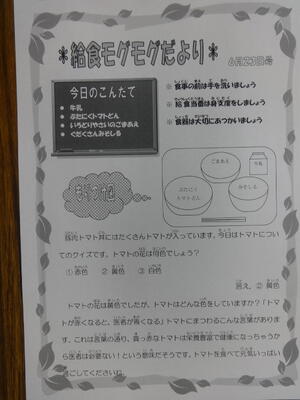 ＊給食モグモグだより＊
6月23日号
今日のこんだて
● 牛乳
● ぶたにくトマトどん
● いろどりやさいのごまあえ
● ぐだくさんみそしる
※ 食事の前は手を洗いましょう
※ 給食当番は身支度をしましょう
※ 食器は大切にあつかいましょう
ごまあえ
牛乳
ぶたにく
トマトどん
みそしる
豚肉トマト丼にはたくさんトマトが入っています。今日はトマトについ
てのクイズです。トマトの花は何色でしょう？
① 赤色　② 黄色　③ 白色
答え、② 黄色
トマトの花は黄色でしたが、トマトはどんな色をしていますか？「トマ
トが赤くなると、医者が青くなる」トマトにまつわるこんな言葉がありま
す。これは言葉の通り、真っ赤なトマトは栄養豊富で健康になっちゃうか
ら医者は必要ない！という意味だそうです。トマトを食べて元気いっぱい
過ごしてくださいね。